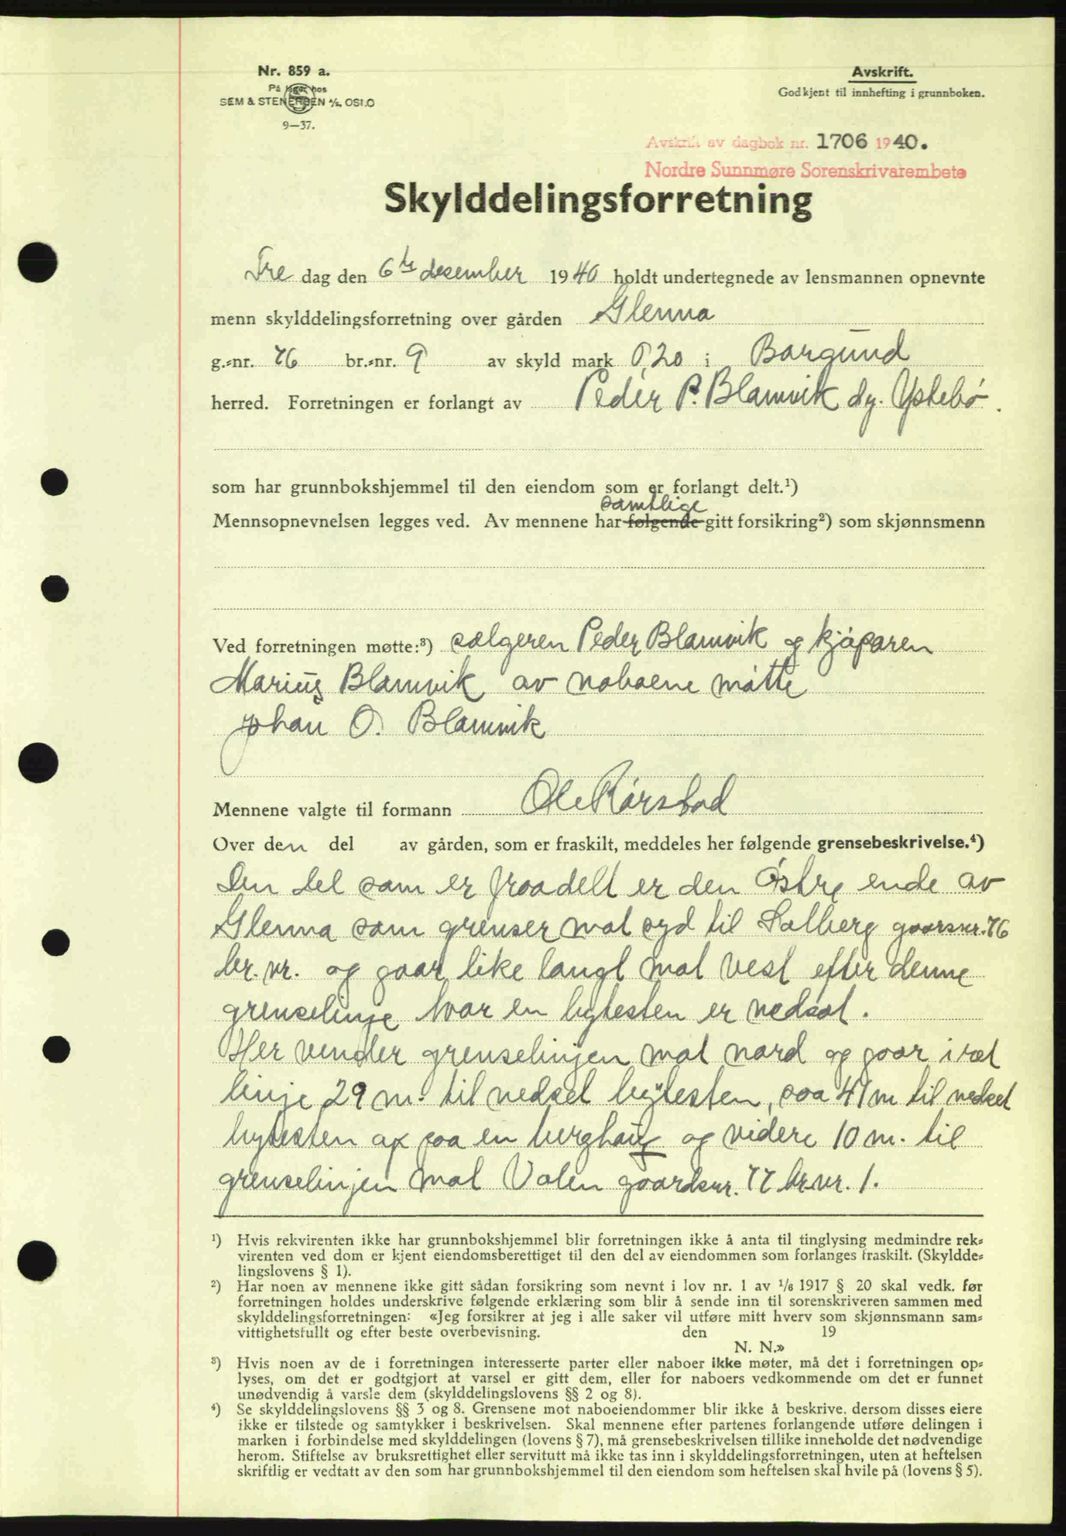 Nr. 859 a.
På lager hos
SEM & STENERSEN A/S, OSLO
9—37.
Avskrift.
Godkjent til innhefting i grunnboken.
Avskrift av dagbok nr. 1706 1940.
Nordre Sunnmøre Sorenskrivarembete
Skylddelingsforretning
Fre dag den 6te desember 1940 holdt undertegnede av lensmannen opnevnte
menn skylddelingsforretning over gården Glenna
g.-nr. 76 br.-nr. 9 av skyld mark 0,20 i Borgund
herred. Forretningen er forlangt av Peder P. Blamvik dy. Ystebø.
som har grunnbokshjemmel til den eiendom som er forlangt delt.¹)
samtlige
Mennsopnevnelsen legges ved. Av mennene har følgende gitt forsikring²) som skjønnsmenn
Ved forretningen møtte:³) sælgeren Peder Blamvik og kjøparen
Marius Blamvik av naboene møtte
Johan O. Blamvik
Mennene valgte til formann Ole Rørstad
Over den del av gården, som er fraskilt, meddeles her følgende grensebeskrivelse.⁴)
Den del som er fraadelt er den østre ende av
Glenna som grenser mot syd til Solberg gaarsnr. 76
br. nr. og gaar like langt mot vest efter denne
grenselinje hvor en bytesten er nedsat.
Her vender grenselinjen mot nord og gaar i ret
linje 29 m. til nedset bytesten, saa 41 m til nedset
bytesten op paa en berghaug og videre 10 m. til
grenselinjen mot Valen gaardsnr. 77 br.nr. 1.
¹) Hvis rekvirenten ikke har grunnbokshjemmel blir forretningen ikke å anta til tinglysing medmindre rek-
virenten ved dom er kjent eiendomsberettiget til den del av eiendommen som forlanges fraskilt. (Skyldde-
lingslovens § 1).
²) Har noen av mennene ikke gitt sådan forsikring som nevnt i lov nr. 1 av ¹/₆ 1917 § 20 skal vedk. før
forretningen holdes underskrive følgende erklæring som blir å sende inn til sorenskriveren sammen med
skylddelingsforretningen: «Jeg forsikrer at jeg i alle saker vil utføre mitt hverv som skjønnsmann sam-
vittighetsfullt og efter beste overbevisning. den 19
N. N.»
³) Hvis noen av de i forretningen interesserte parter eller naboer ikke møter, må det i forretningen op-
lyses, om det er godtgjort at varsel er gitt dem, eller for naboers vedkommende om det er funnet
unødvendig å varsle dem (skylddelingslovens §§ 2 og 8).
⁴) Se skylddelingslovens §§ 3 og 8. Grensene mot naboeiendommer blir ikke å beskrive, dersom disses eiere
ikke er tilstede og samtykker i beskrivelsen. Skal mennene efter partenes forlangende utføre delingen i
marken i forbindelse med skylddelingen (lovens § 7), må grensebeskrivelsen tillike inneholde det nødvendige
herom. Stiftelse av bruksrettighet eller servitutt må ikke tas inn i skylddelingsforretningen, uten at heftelsen
skriftlig er vedtatt av den som har grunnbokshjemmel til den eiendom som heftelsen skal hvile på (lovens § 5).